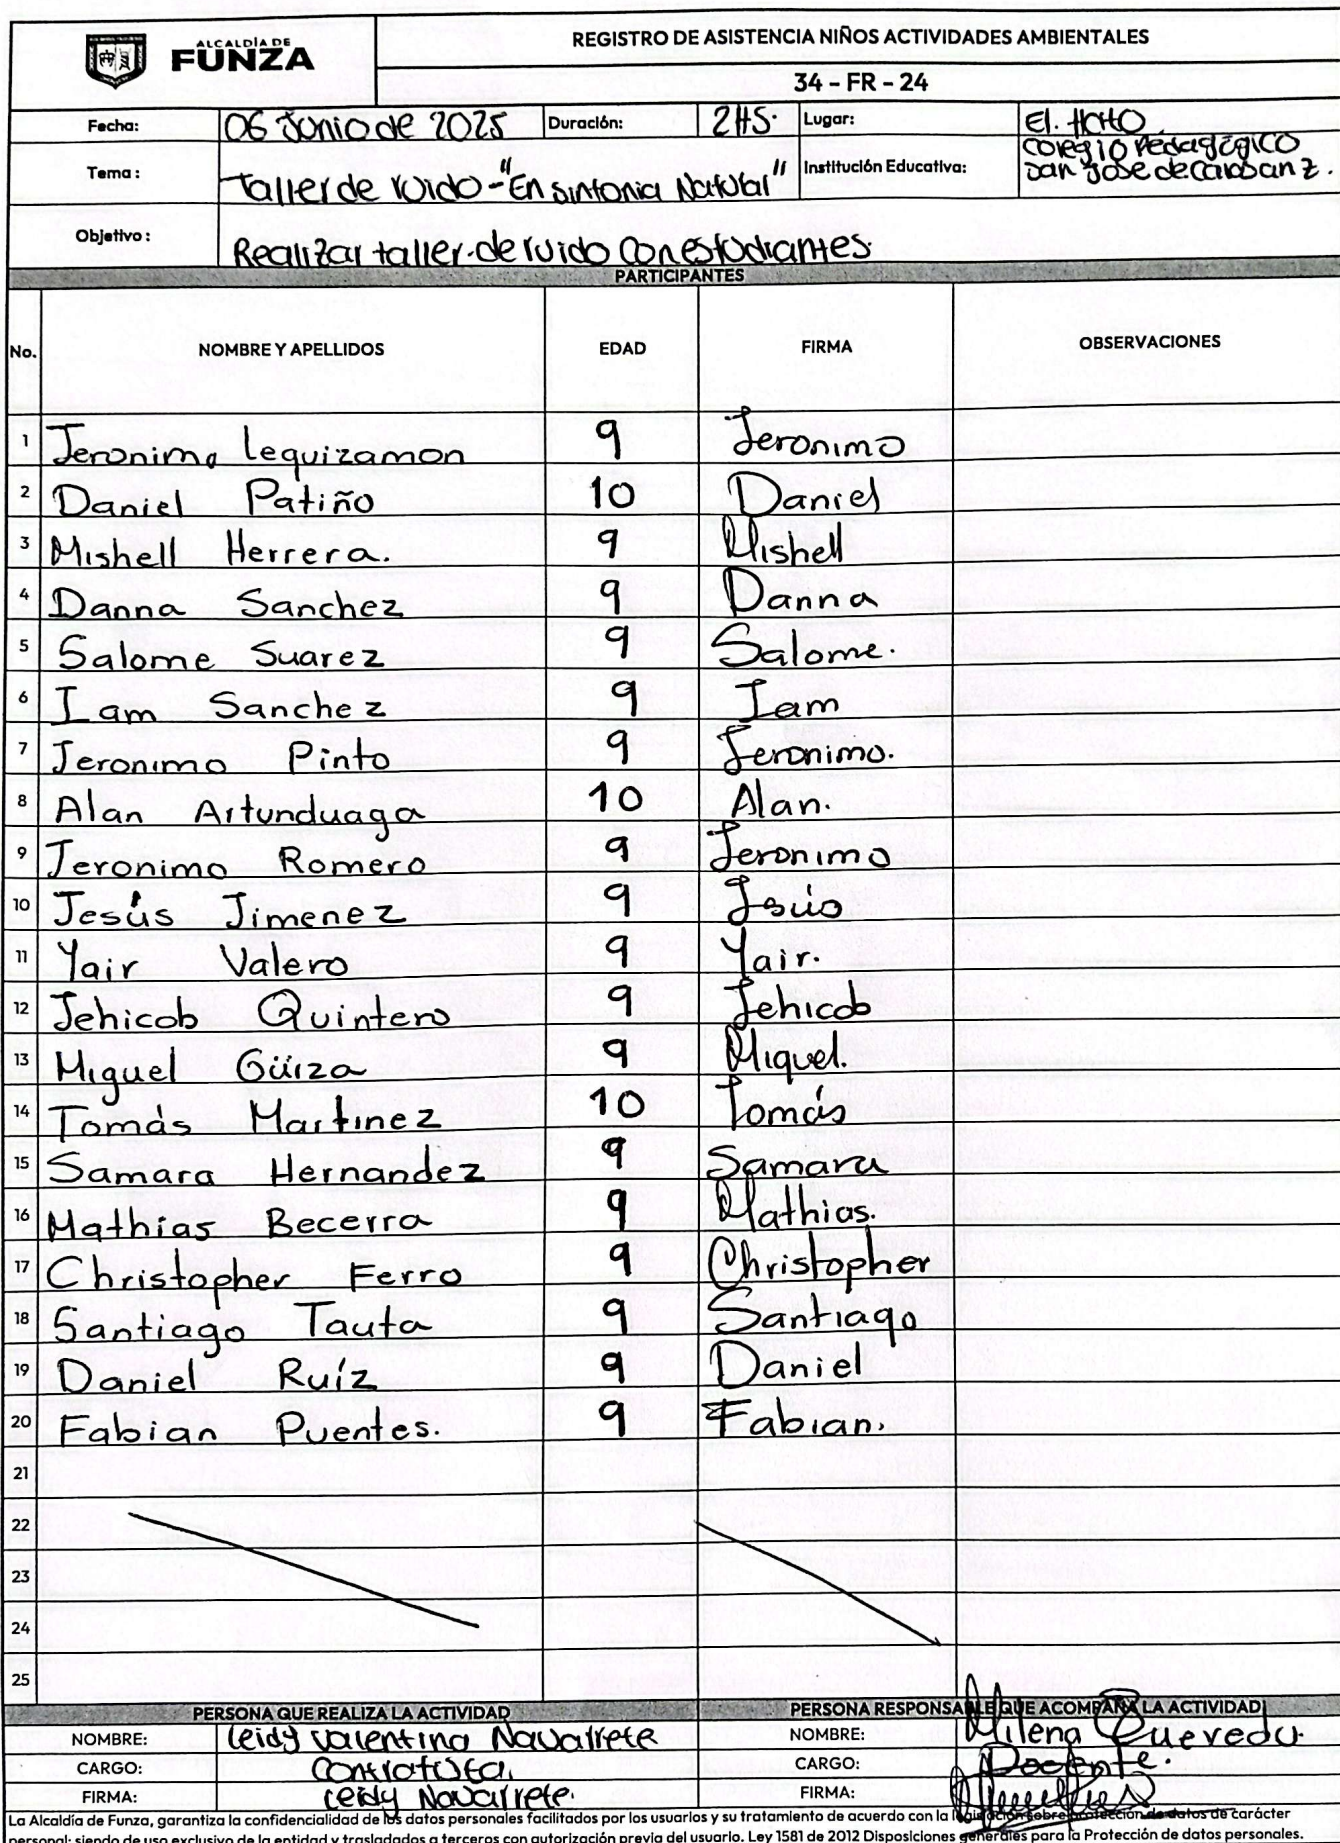 ALCALDÍA DE
FUNZA
REGISTRO DE ASISTENCIA NIÑOS ACTIVIDADES AMBIENTALES
34 - FR - 24
Fecha: 06 Junio de 2025 Duración: 2HS. Lugar: El. Hato
Tema: Taller de ruido - "En sintonia Natural" Institución Educativa: Colegio Pedagógico San Jose de Carasanz.
Objetivo: Realizar taller de ruido con estudiantes.
PARTICIPANTES
No. NOMBRE Y APELLIDOS EDAD FIRMA OBSERVACIONES
1 Jeronimo Leguizamon 9 Jeronimo
2 Daniel Patiño 10 Daniel
3 Mishell Herrera. 9 Mishell
4 Danna Sanchez 9 Danna
5 Salome Suarez 9 Salome.
6 Iam Sanchez 9 Iam
7 Jeronimo Pinto 9 Jeronimo.
8 Alan Artunduaga 10 Alan.
9 Jeronimo Romero 9 Jeronimo
10 Jesús Jimenez 9 Jesús
11 Yair Valero 9 Yair.
12 Jehicob Quintero 9 Jehicob
13 Miguel Güiza 9 Miguel.
14 Tomás Martinez 10 Tomás
15 Samara Hernandez 9 Samara
16 Mathias Becerra 9 Mathias.
17 Christopher Ferro 9 Christopher
18 Santiago Tauta 9 Santiago
19 Daniel Ruíz 9 Daniel
20 Fabian Puentes. 9 Fabian.
21
22
23
24
25
PERSONA QUE REALIZA LA ACTIVIDAD PERSONA RESPONSABLE QUE ACOMPAÑA LA ACTIVIDAD
NOMBRE: Leidy Valentina Navarrete NOMBRE: Milena Quevedo.
CARGO: Contratista. CARGO: Docente.
FIRMA: Leidy Navarrete. FIRMA:
La Alcaldía de Funza, garantiza la confidencialidad de los datos personales facilitados por los usuarios y su tratamiento de acuerdo con la legislación sobre protección de datos de carácter
personal; siendo de uso exclusivo de la entidad y trasladados a terceros con autorización previa del usuario. Ley 1581 de 2012 Disposiciones generales para la Protección de datos personales.